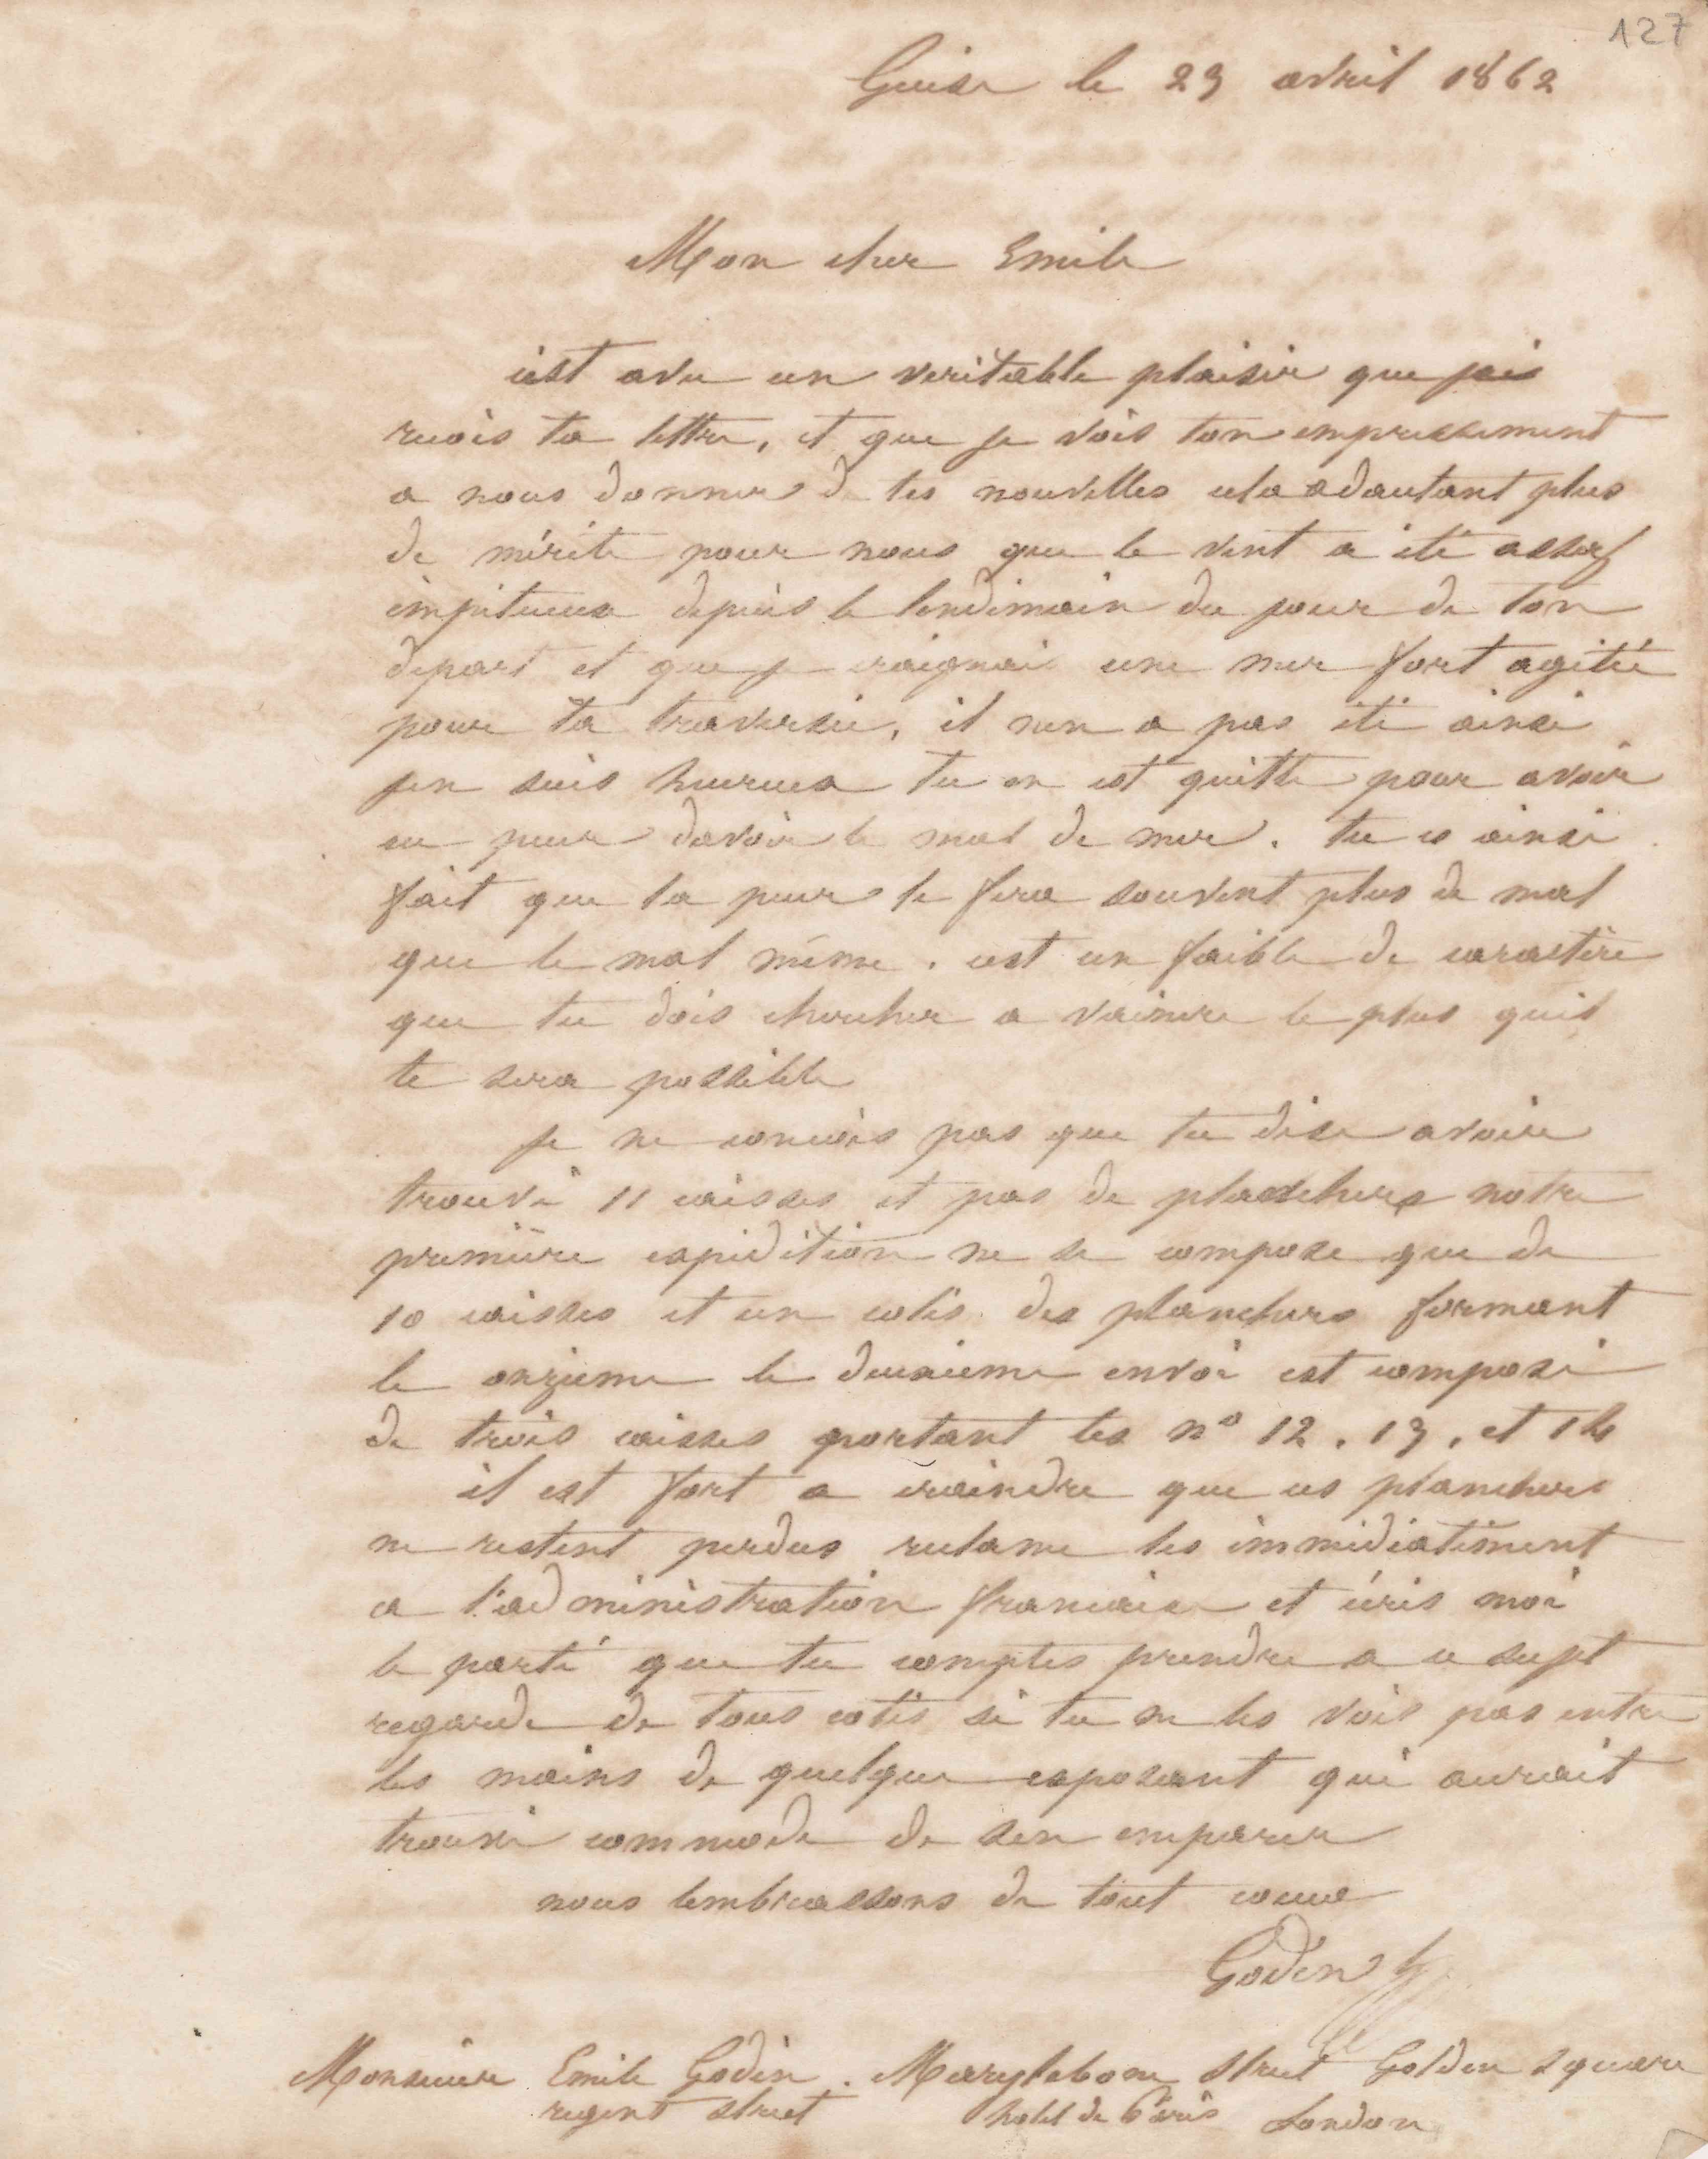 127
Guise le 23 avril 1862
Mon cher Emile
cest avec un veritable plaisir que jai
recois ta lettre, et que je vois ton empressement
a nous donner de tes nouvelles cela a dautant plus
de mérite pour nous que le vent a été assez
impetueux depuis le lendemain du jour de ton
depart et que je craignais une mer fort agitée
pour ta traversée, il nen a pas été ainsi
jen suis heureux tu en est quitte pour avoir
eu peur davoir le mal de mer. tu es ainsi
fait que la peur te fera souvent plus de mal
que le mal même. cest un faible de caractère
que tu dois chercher a vaincre le plus quil
te sera possible
je ne concois pas que tu dise avoir
trouvé 11 caisses et pas de planchers notre
première expédition ne se compose que de
10 caisses et un colis des planchers formant
le onzieme le deuxieme envoi est composé
de trois caisses portant les no 12, 13, et 14
il est fort a craindre que ces planchers
ne restent perdus reclame les immédiatement
a l'administration francaise et écris moi
le parti que tu comptes prendre a ce sujet
regarde de tous cotés si tu ne les vois pas entre
les mains de quelque exposant qui aurait
trouvé commode de sen emparer
nous tembrassons de tout coeur
Godin
Monsieur Emile Godin. Marylebone street Golden square
regent street hotel de Paris London